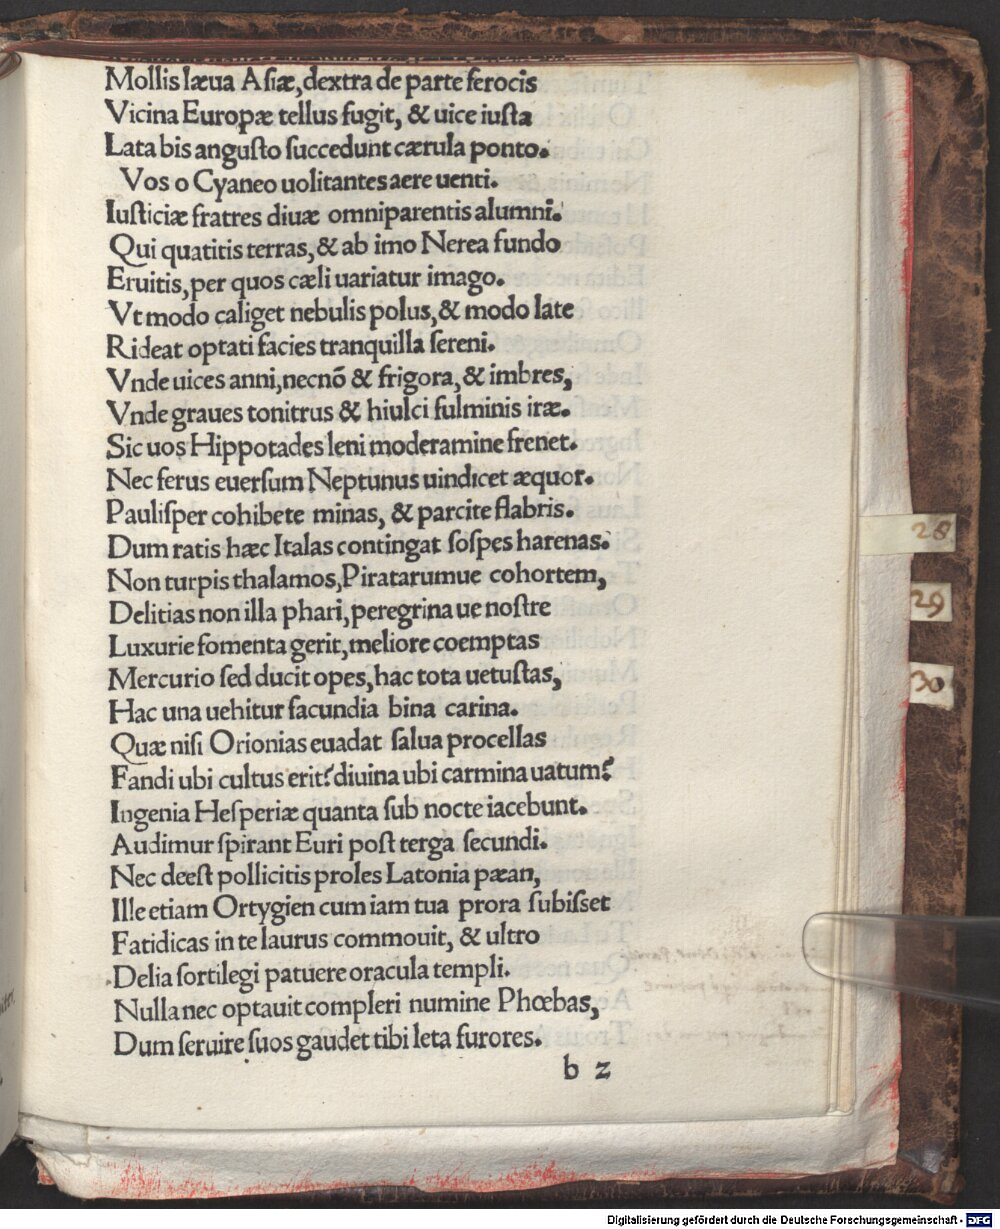 Mollis læua Asiæ, dextra de parte ferocis
Vicina Europæ tellus fugit, & uice iusta
Lata bis angusto succedunt cærula ponto.
Vos o Cyaneo uolitantes aere uenti.
Iusticiæ fratres diuæ omniparentis alumni.
Qui quatitis terras, & ab imo Nerea fundo
Eruitis, per quos cæli uariatur imago.
Vt modo caliget nebulis polus, & modo late
Rideat optati facies tranquilla sereni.
Vnde uices anni, necnõ & frigora, & imbres,
Vnde graues tonitrus & hiulci fulminis iræ.
Sic uos Hippotades leni moderamine frenet.
Nec ferus euersum Neptunus uindicet æquor.
Paulisper cohibete minas, & parcite flabris.
Dum ratis hæc Italas contingat sospes harenas.
Non turpis thalamos, Piratarumue cohortem,
Delitias non illa phari, peregrina ue nostre
Luxurie fomenta gerit, meliore coemptas
Mercurio sed ducit opes, hac tota uetustas,
Hac una uehitur facundia bina carina.
Quæ nisi Orionias euadat salua procellas
Fandi ubi cultus erit? diuina ubi carmina uatum?
Ingenia Hesperiæ quanta sub nocte iacebunt.
Audimur spirant Euri post terga secundi.
Nec deest pollicitis proles Latonia pæan,
Ille etiam Ortygien cum iam tua prora subisset
Fatidicas in te laurus commouit, & ultro
Delia sortilegi patuere oracula templi.
Nulla nec optauit compleri numine Phœbas,
Dum seruire suos gaudet tibi leta furores.
b 2
28
29
30
Digitalisierung gefördert durch die Deutsche Forschungsgemeinschaft - DFG